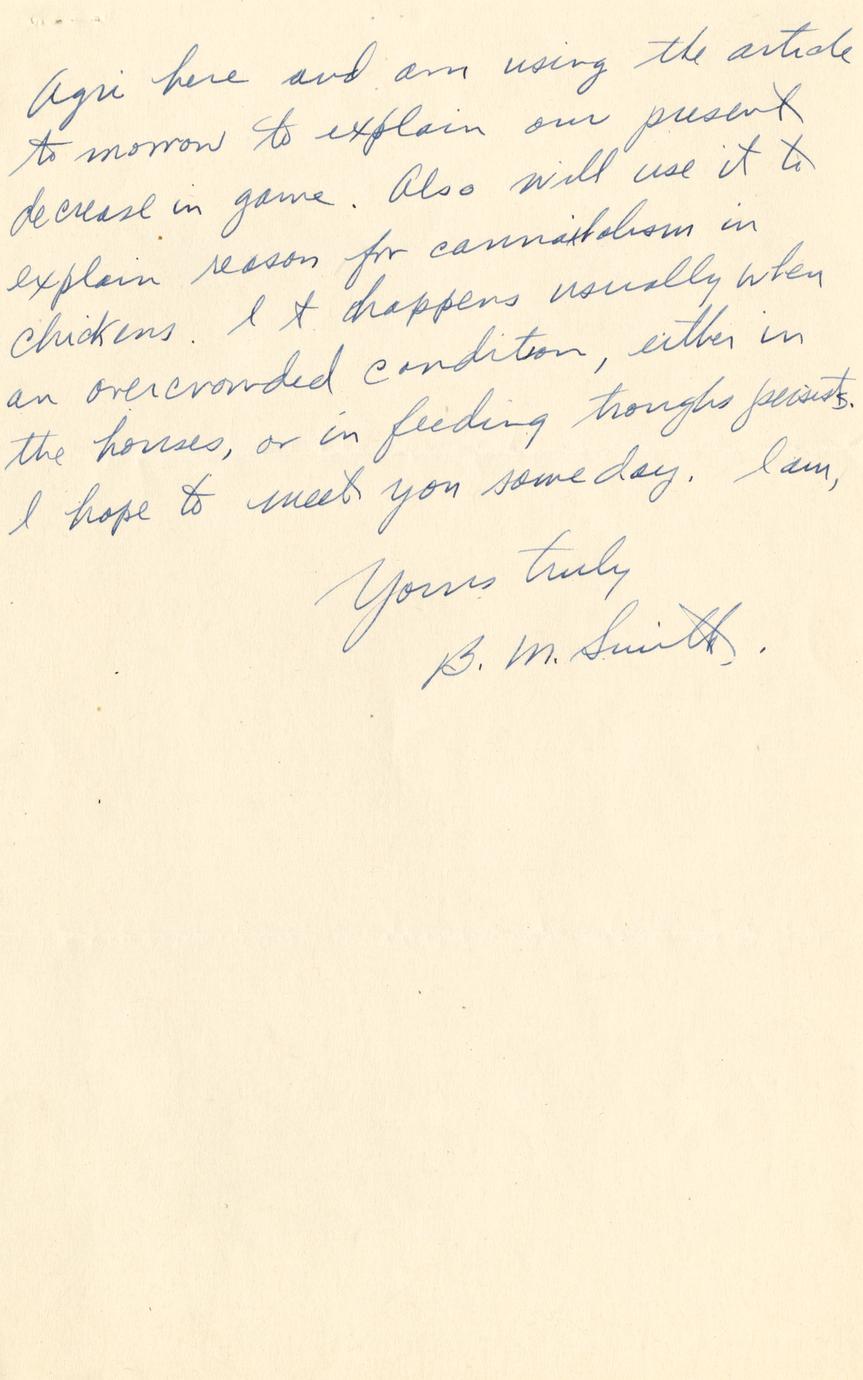 Agri here and am using the article
to morrow to explain our present
decrease in game. Also will use it to
explain reason for cannabolism in
chickens. I t happens usually when
an overcrowded condition, either in
the houses, or in feeding troughs persists.
I hope to meet you some day. I am,
Yours truly
B. M. Smith.